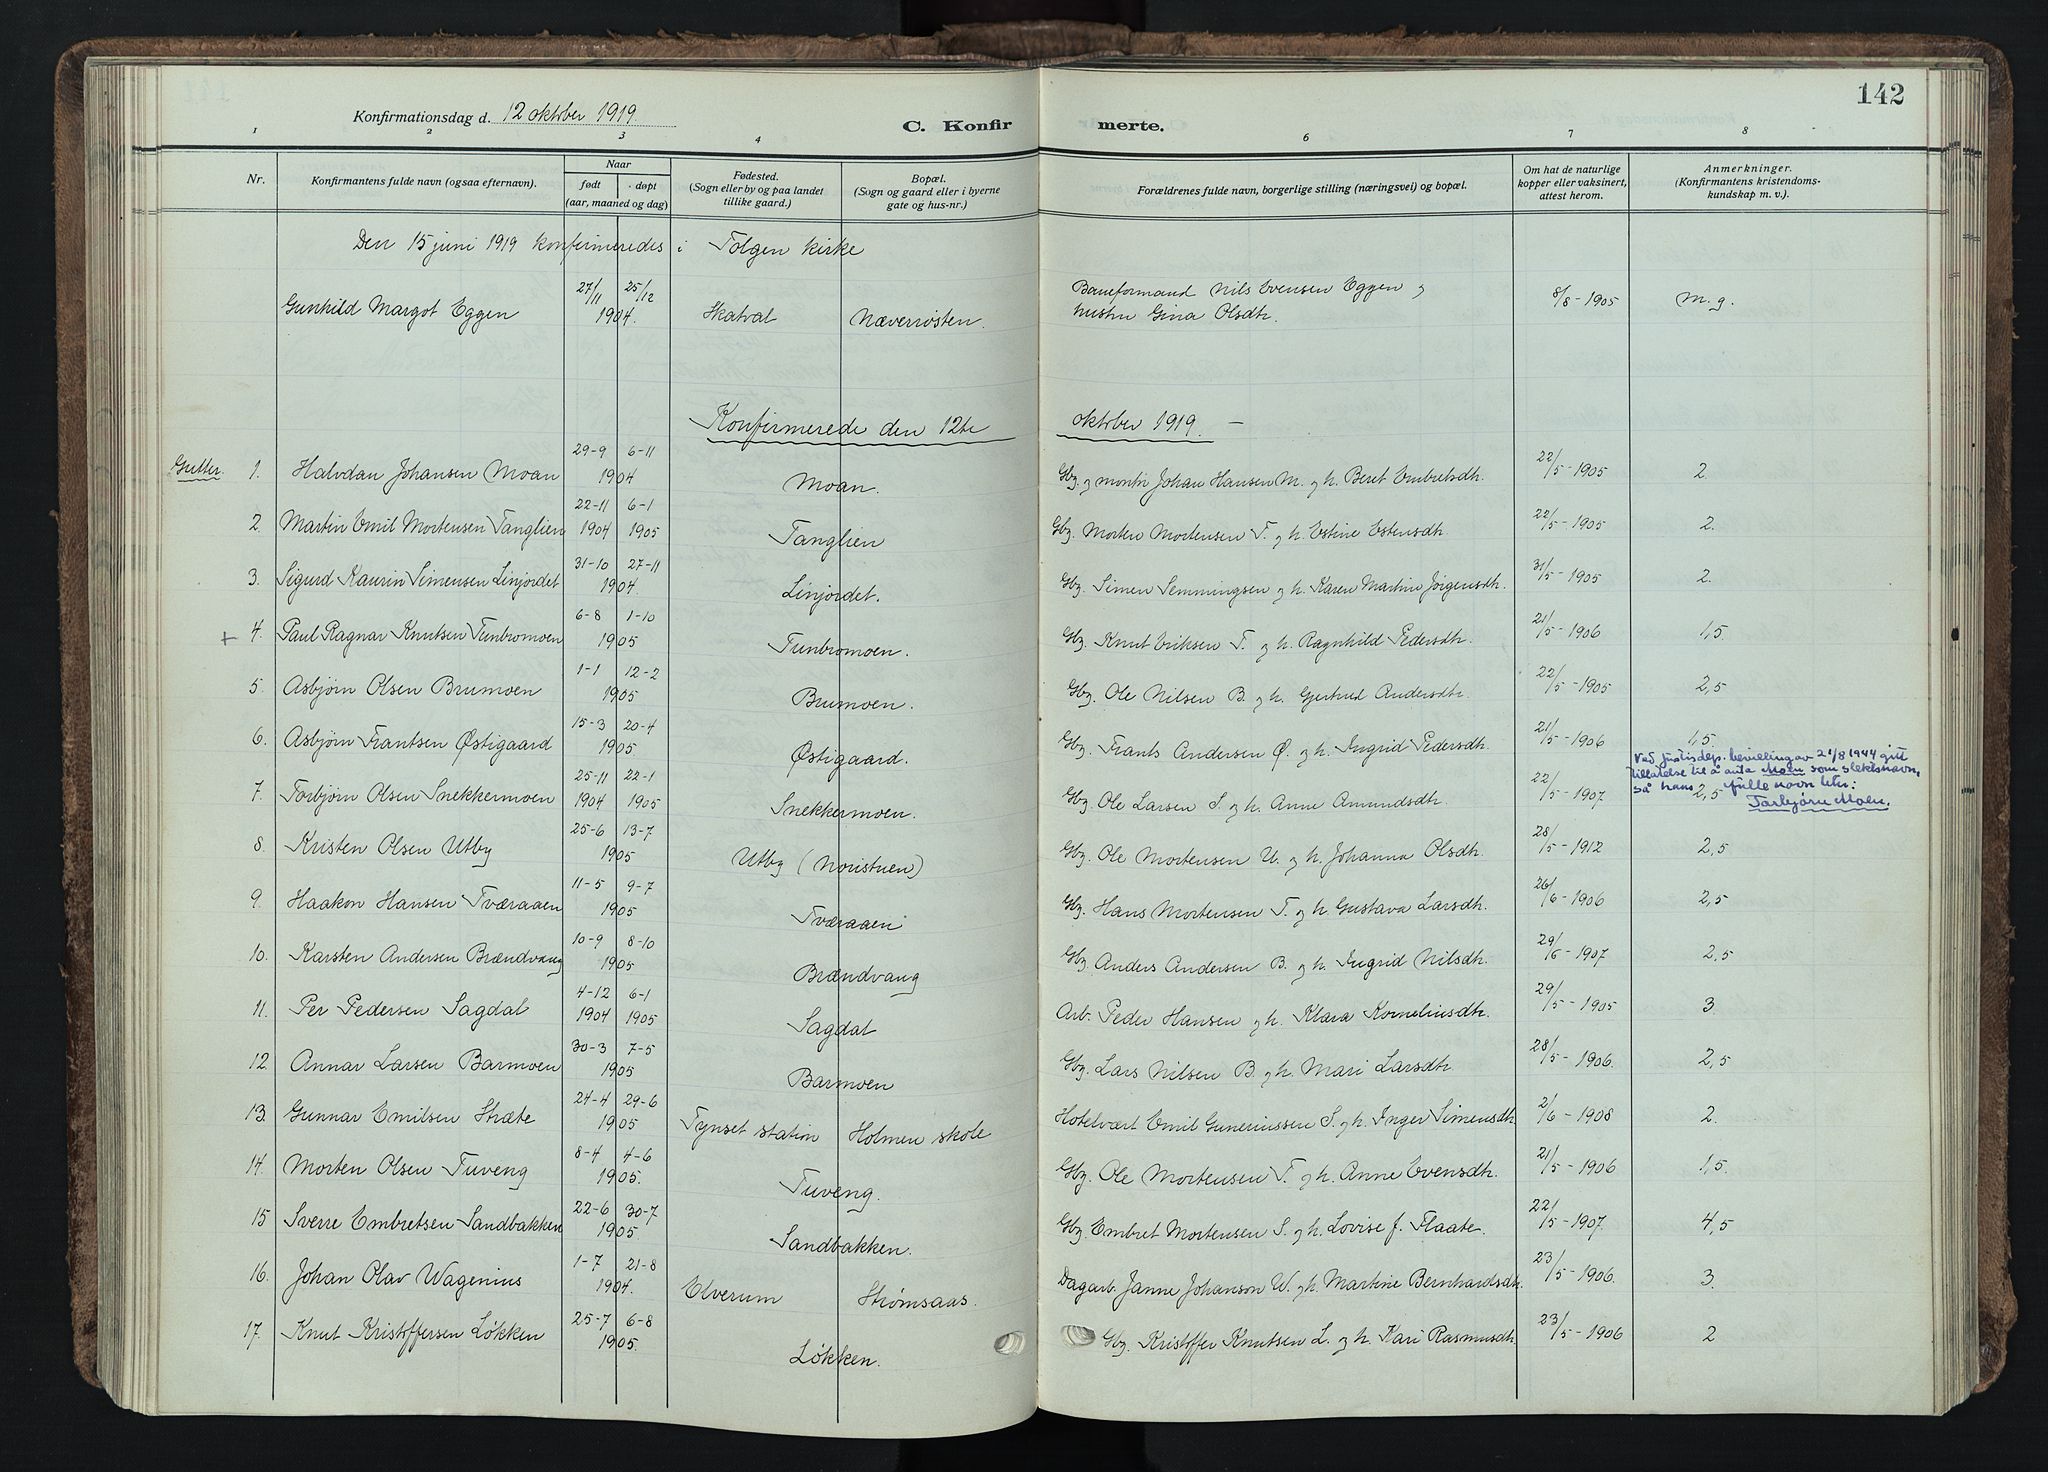 142
Konfirmationsdag d. 12 oktober 1919.
C. Konfirmerte.
1 2 3 4 6 7 8
Nr.
Konfirmantens fulde navn (ogsaa efternavn).
Naar
født døpt
(aar, maaned og dag)
Fødested.
(Sogn eller by og paa landet
tillike gaard.)
Bopæl.
(Sogn og gaard eller i byerne
gate og hus-nr.)
Forældrenes fulde navn, borgerlige stilling (næringsvei) og bopæl.
Om hat de naturlige
kopper eller vaksinert,
attest herom.
Anmerkninger.
(Konfirmantens kristendoms-
kundskap m. v.).
Den 15 juni 1919 konfirmeredes i Tolgen kirke
Gunhild Margot Eggen 27/11 25/12 1904. Skatval Næverrosten. Baneformand Nils Evensen Eggen og hustru Gina Olsdtr. 8/8-1905 M.g.
Konfirmerede den 12te oktober 1919. -
Gutter. 1. Halvdan Johansen Moan 29-9 6-11 1904 Moan. Gbr. og montør Johan Hansen M. og h. Beret Embretsdtr. 22/5-1905 2.
2. Martin Emil Mortensen Tanglien 22-11 1904 6-1 1905 Tanglien Gbr. Morten Mortensen T. og h. Estine Estensdtr. 22/5-1905 2.
3. Sigurd Kaurin Simensen Linjordet 31-10 27-11 1904. Linjordet. Gbr. Simen Semmingsen og h. Karen Martine Jørgensdtr. 31/5-1905 2.
+ 4. Paul Ragnar Knutsen Tunbromoen 6-8 1-10 1905 Tunbromoen. Gbr. Knut Eriksen T. og h. Ragnhild Pedersdtr. 21/5-1906 1,5.
5. Asbjørn Olsen Brumoen 1-1 12-2 1905 Brumoen. Gbr. Ole Nilsen B. og h. Gjertrud Andersdtr. 22/5-1905 2,5
6. Asbjørn Frantsen Østigaard 15-3 20-4 1905 Østigaard. Gbr. Frants Andersen Ø. og h. Ingrid Pedersdtr. 21/5-1906 1,5
Ved Justisdep. bevilling av 21/8 1944 gitt
tillatelse til å anta Moen som slektsnavn,
så hans fulle navn blir:
Torbjørn Moen.
7. Torbjørn Olsen Snekkermoen 25-11 1904 22-1 1905 Snekkermoen. Gbr. Ole Larsen S. og h. Anne Amundsdtr. 22/5-1907 2,5
8. Kristen Olsen Utby 25-6 13-7 1905 Utby (Noristuen) Gbr. Ole Mortensen U. og h. Johanna Olsdtr. 28/5-1912 2,5
9. Haakon Hansen Tværaaen 11-5 9-7 1905 Tværaaen Gbr. Hans Mortensen T. og h. Gustava Larsdtr. 26/6-1906 2,5
10. Karsten Andersen Brændvang 10-9 8-10 1905 Brændvang Gbr. Anders Andersen B. og h. Ingrid Nilsdtr. 29/6-1907 2.5
11. Per Pedersen Sagdal 4-12 1904 6-1 1905 Sagdal Arb. Peder Hansen og h. Klara Korneliusdtr. 29/5-1905 3
12 Annar Larsen Barmoen 30-3 7-5 1905 Barmoen Gbr. Lars Nilsen B. og h. Mari Larsdtr. 28/5-1906. 2,5
13. Gunnar Emilsen Stræte 24-4 29-6 1905 Tynset station Holmen skole Hotelvært Emil Guneriussen S. og h. Inger Simensdtr. 2/6-1908 2.
14. Morten Olsen Tuveng 8-4 4-6 1905. Tuveng. Gbr. Ole Mortensen T. og h. Anne Evensdtr. 21/5-1906 1,5.
15 Sverre Embretsen Sandbakken 22-6 30-7 1905 Sandbakken. Gbr. Embret Mortensen S. og h. Lovise f. Flaate. 22/5-1907. 4,5
16. Johan Olav Wagenius 1-7 21-8 1904. Elverum Strømsaas. Dagarb. Janne Johanson W. og h. Martine Bernhardsdtr. 23/5-1906. 3.
17. Knut Kristoffersen Løkken 25-7 6-8 1905. Løkken. Gbr. Kristoffer Knutsen L. og h. Kari Rasmusdtr. 23/5-1906 2